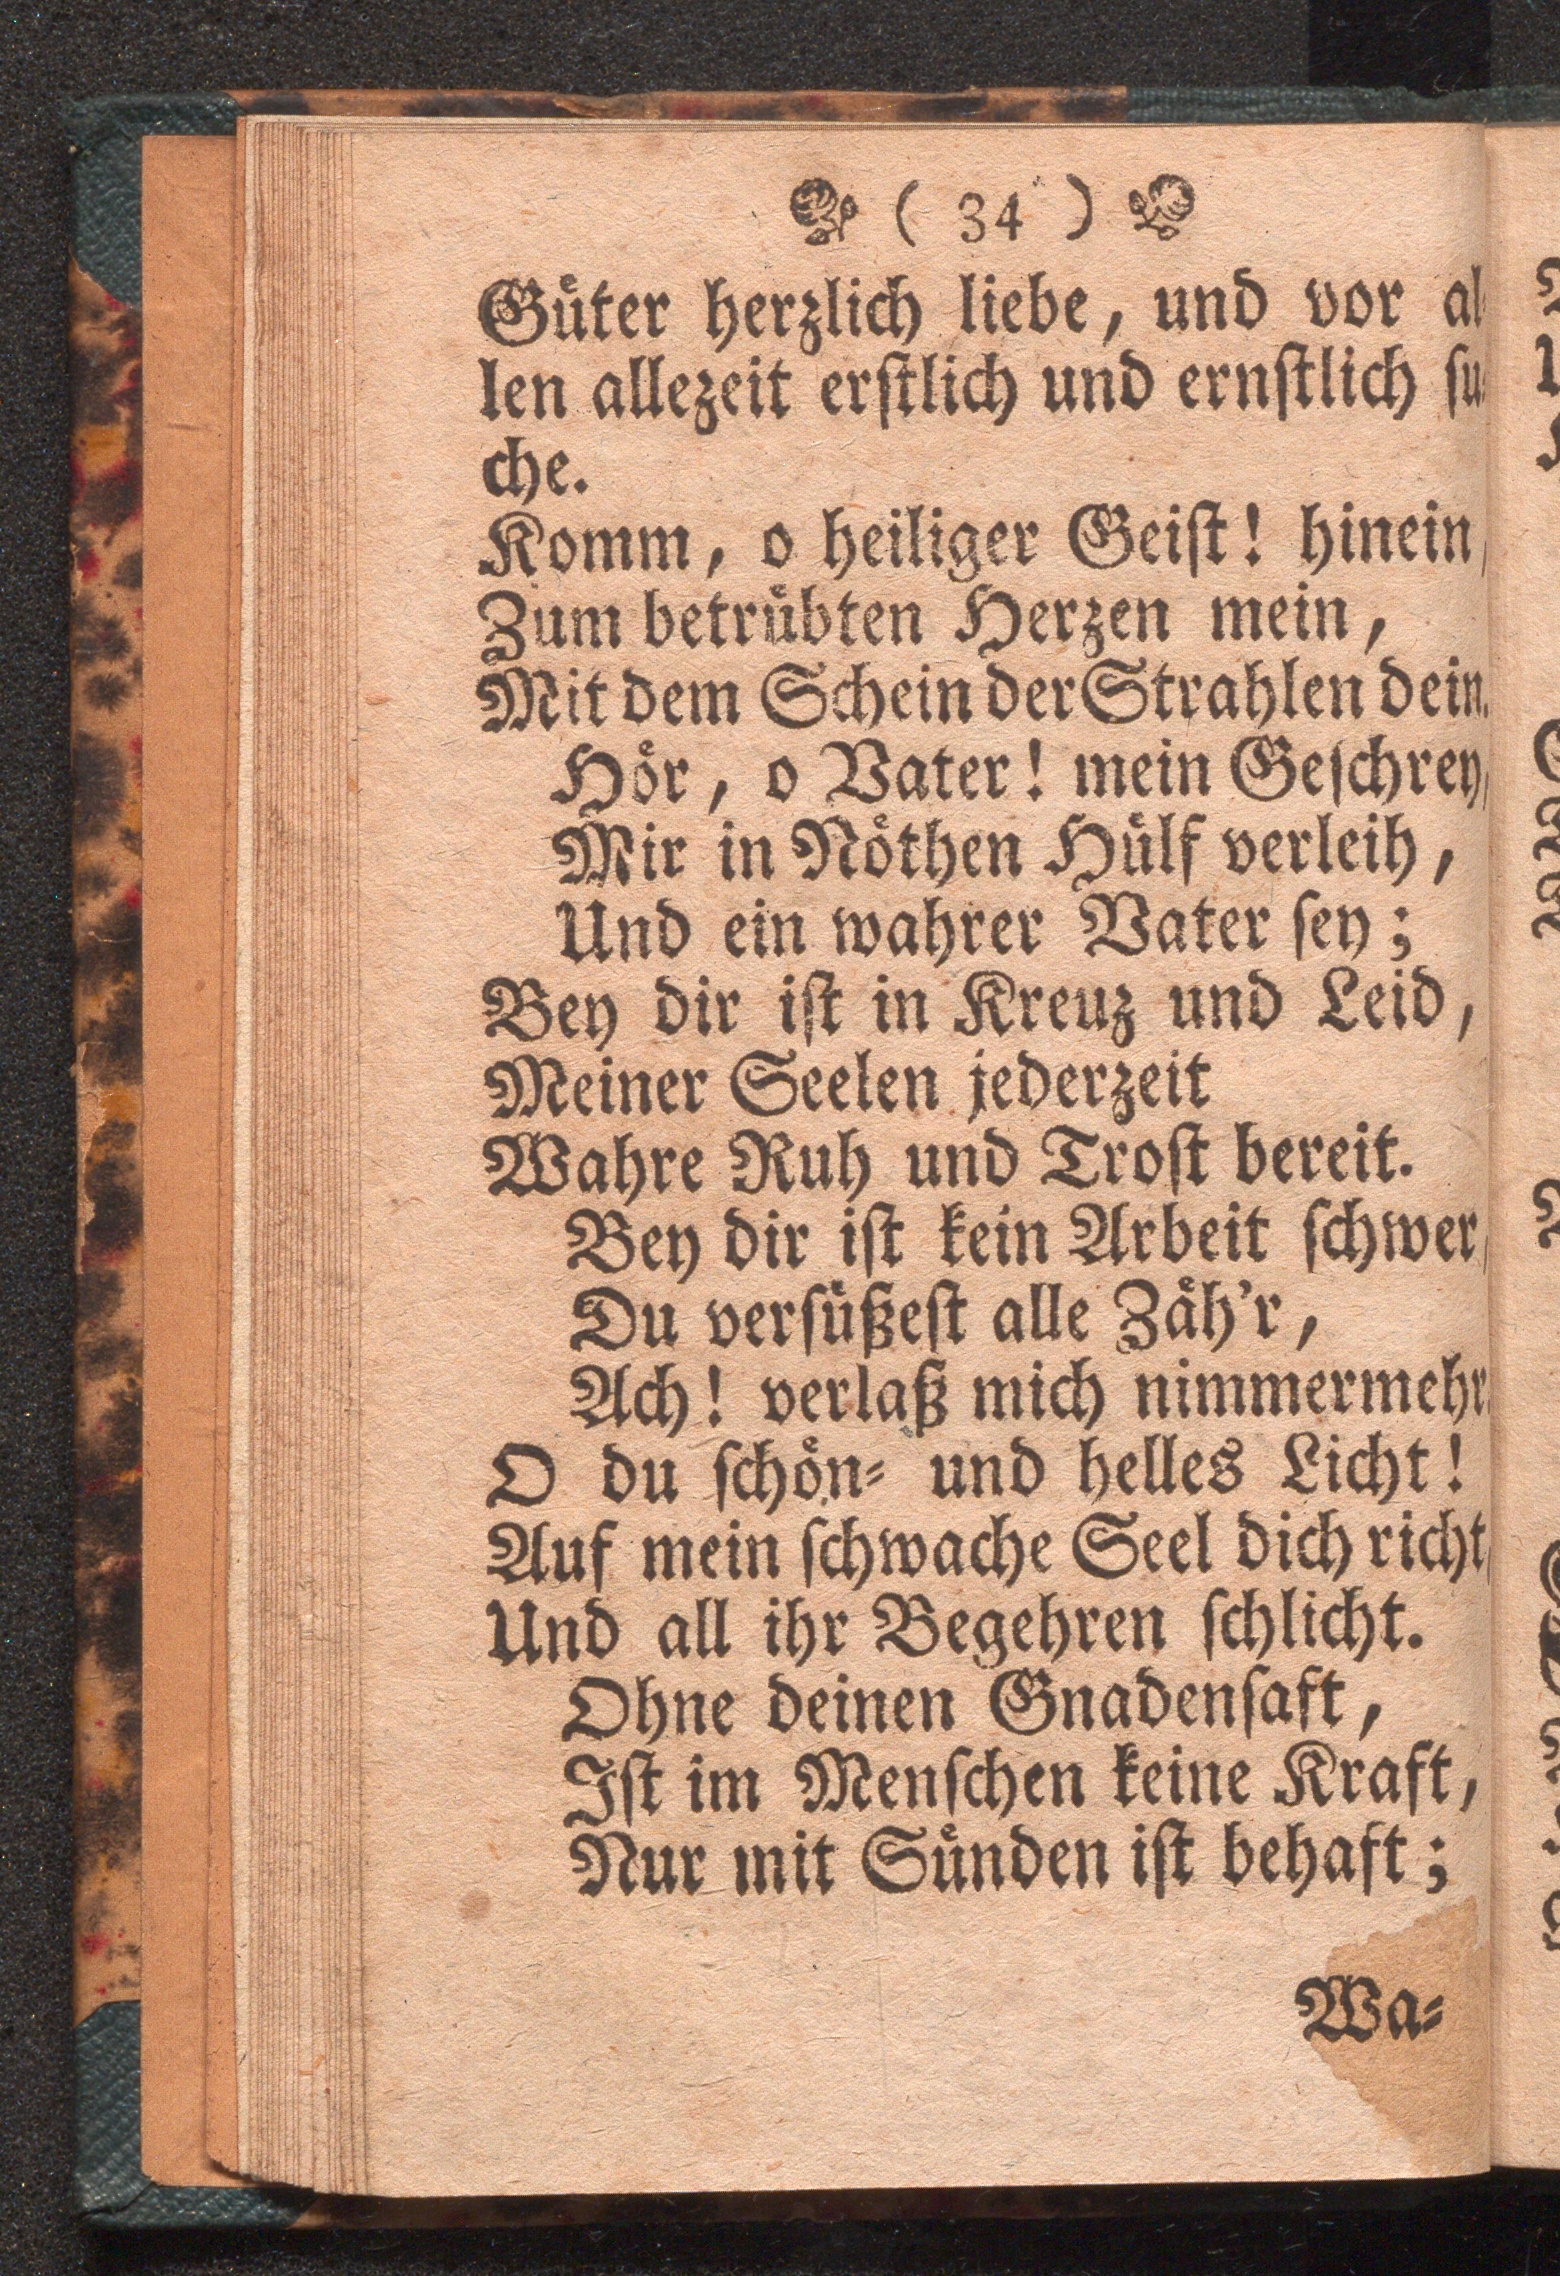 ( 34 )
Güter herzlich liebe, und vor al-
len allezeit erstlich und ernstlich su-
che.
Komm, o heiliger Geist! hinein,
Zum betrübten Herzen mein,
Mit dem Schein der Strahlen dein.
Hör, o Vater! mein Geschrey,
Mir in Nöthen Hülf verleih,
Und ein wahrer Vater sey;
Bey dir ist in Kreuz und Leid,
Meiner Seelen jederzeit
Wahre Ruh und Trost bereit.
Bey dir ist kein Arbeit schwer,
Du versüßest alle Zäh'r,
Ach! verlaß mich nimmermehr.
O du schön- und helles Licht!
Auf mein schwache Seel dich richt,
Und all ihr Begehren schlicht.
Ohne deinen Gnadensaft,
Ist im Menschen keine Kraft,
Nur mit Sünden ist behaft;
Wa-